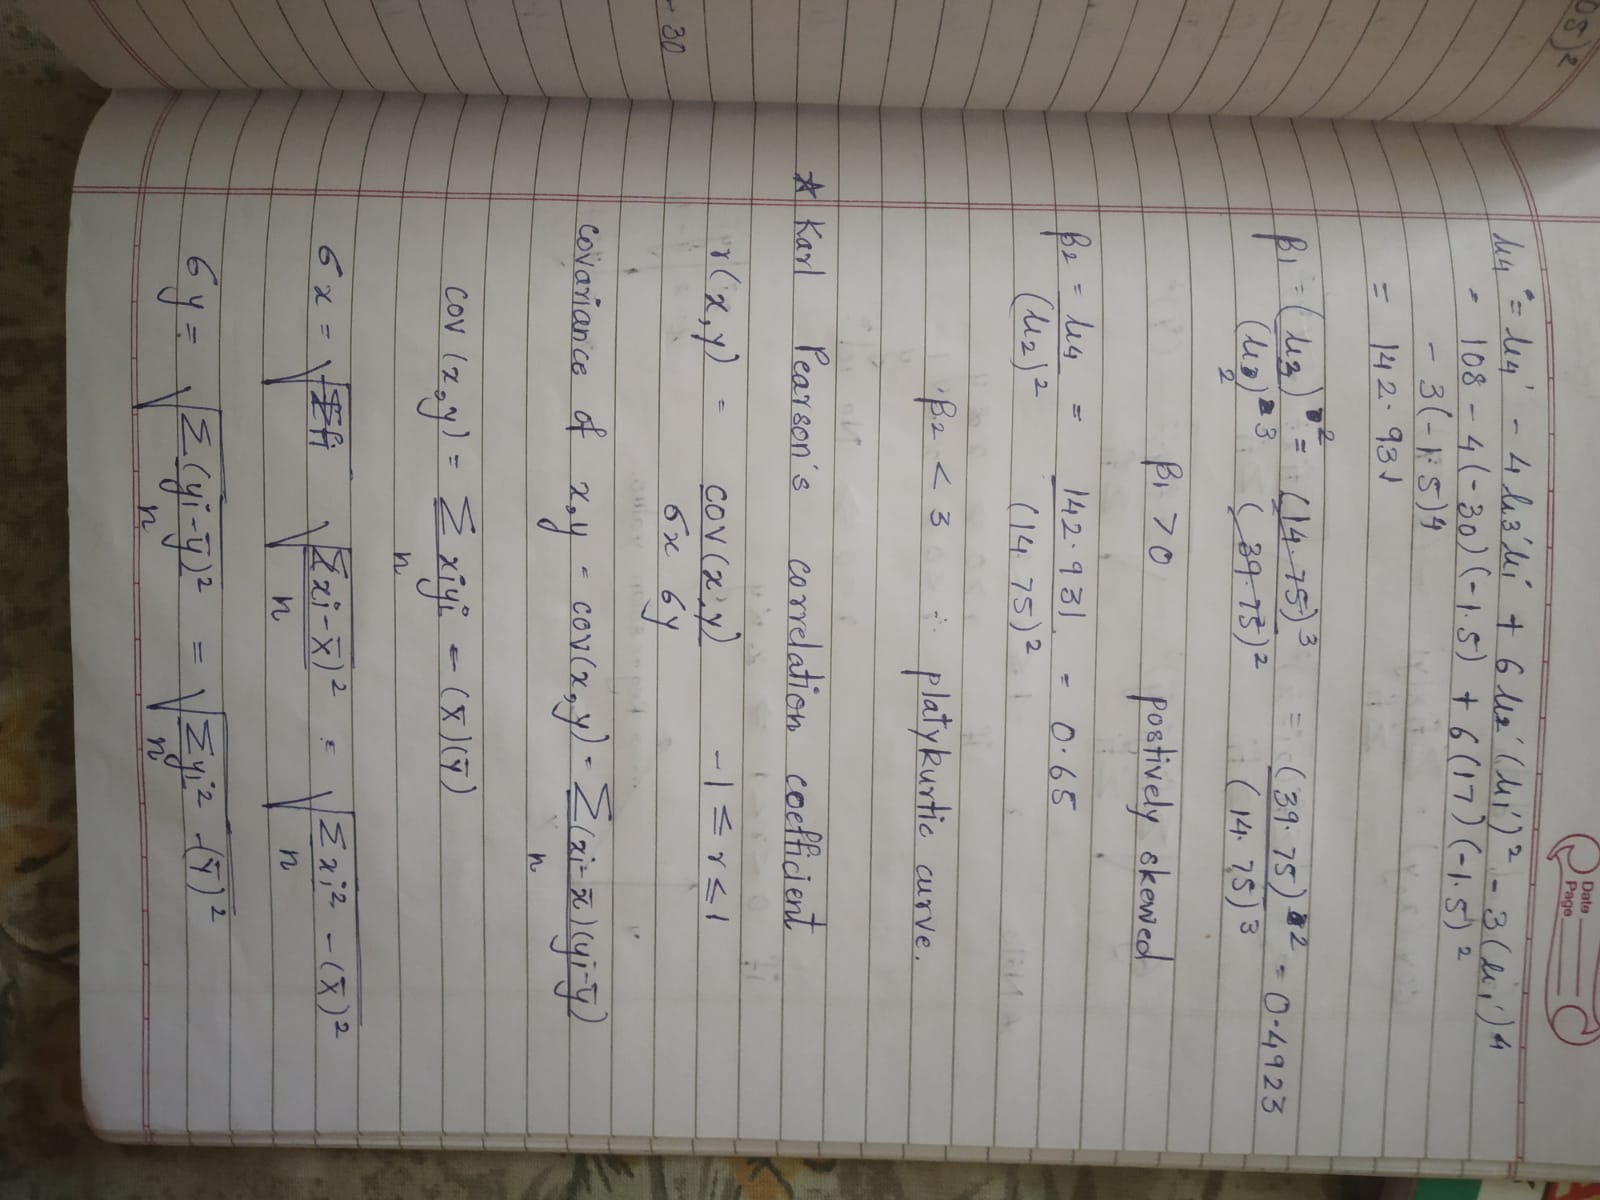 05)²
Date
Page
μ4 = μ4' - 4 μ3'μ1' + 6 μ2'(μ1')² - 3(μ1')4
= 108 - 4(-30)(-1.5) + 6(17)(-1.5)²
- 3(-1.5)4
= 142.931
β1 = (μ3)² / (μ2)³ = (14.75)³ / (39.75)² = (39.75)² / (14.75)³ = 0.4923
β1 > 0 postively skewed
β2 = μ4 / (μ2)² = 142.931 / (14.75)² = 0.65
β2 < 3 ∴ platykurtic curve.
☆ Karl Pearson's correlation coefficient
r(x,y) = cov(x,y) / σx σy -1 ≤ r ≤ 1
- 30
covariance of x,y = cov(x,y) = Σ(xi-x̄)(yi-ȳ) / n
cov (x,y) = Σ xiyi / n - (x̄)(ȳ)
σx = √Σfi √(Σxi-x̄)² / n = √Σxi² / n - (x̄)²
σy = √Σ(yi-ȳ)² / n = √Σyi² / n - (ȳ)²